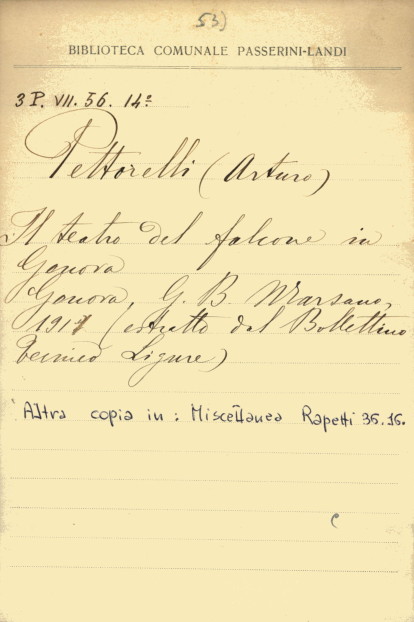 53)
BIBLIOTECA COMUNALE PASSERINI-LANDI
3 P. VII. 56. 14º
Pettorelli (Arturo)
Il teatro del falcone in
Genova
Genova, G. B. Marsano,
1911 (estratto dal Bollettino
Tecnico Ligure)
Altra copia in: Miscellanea Rapetti 35.16.
C